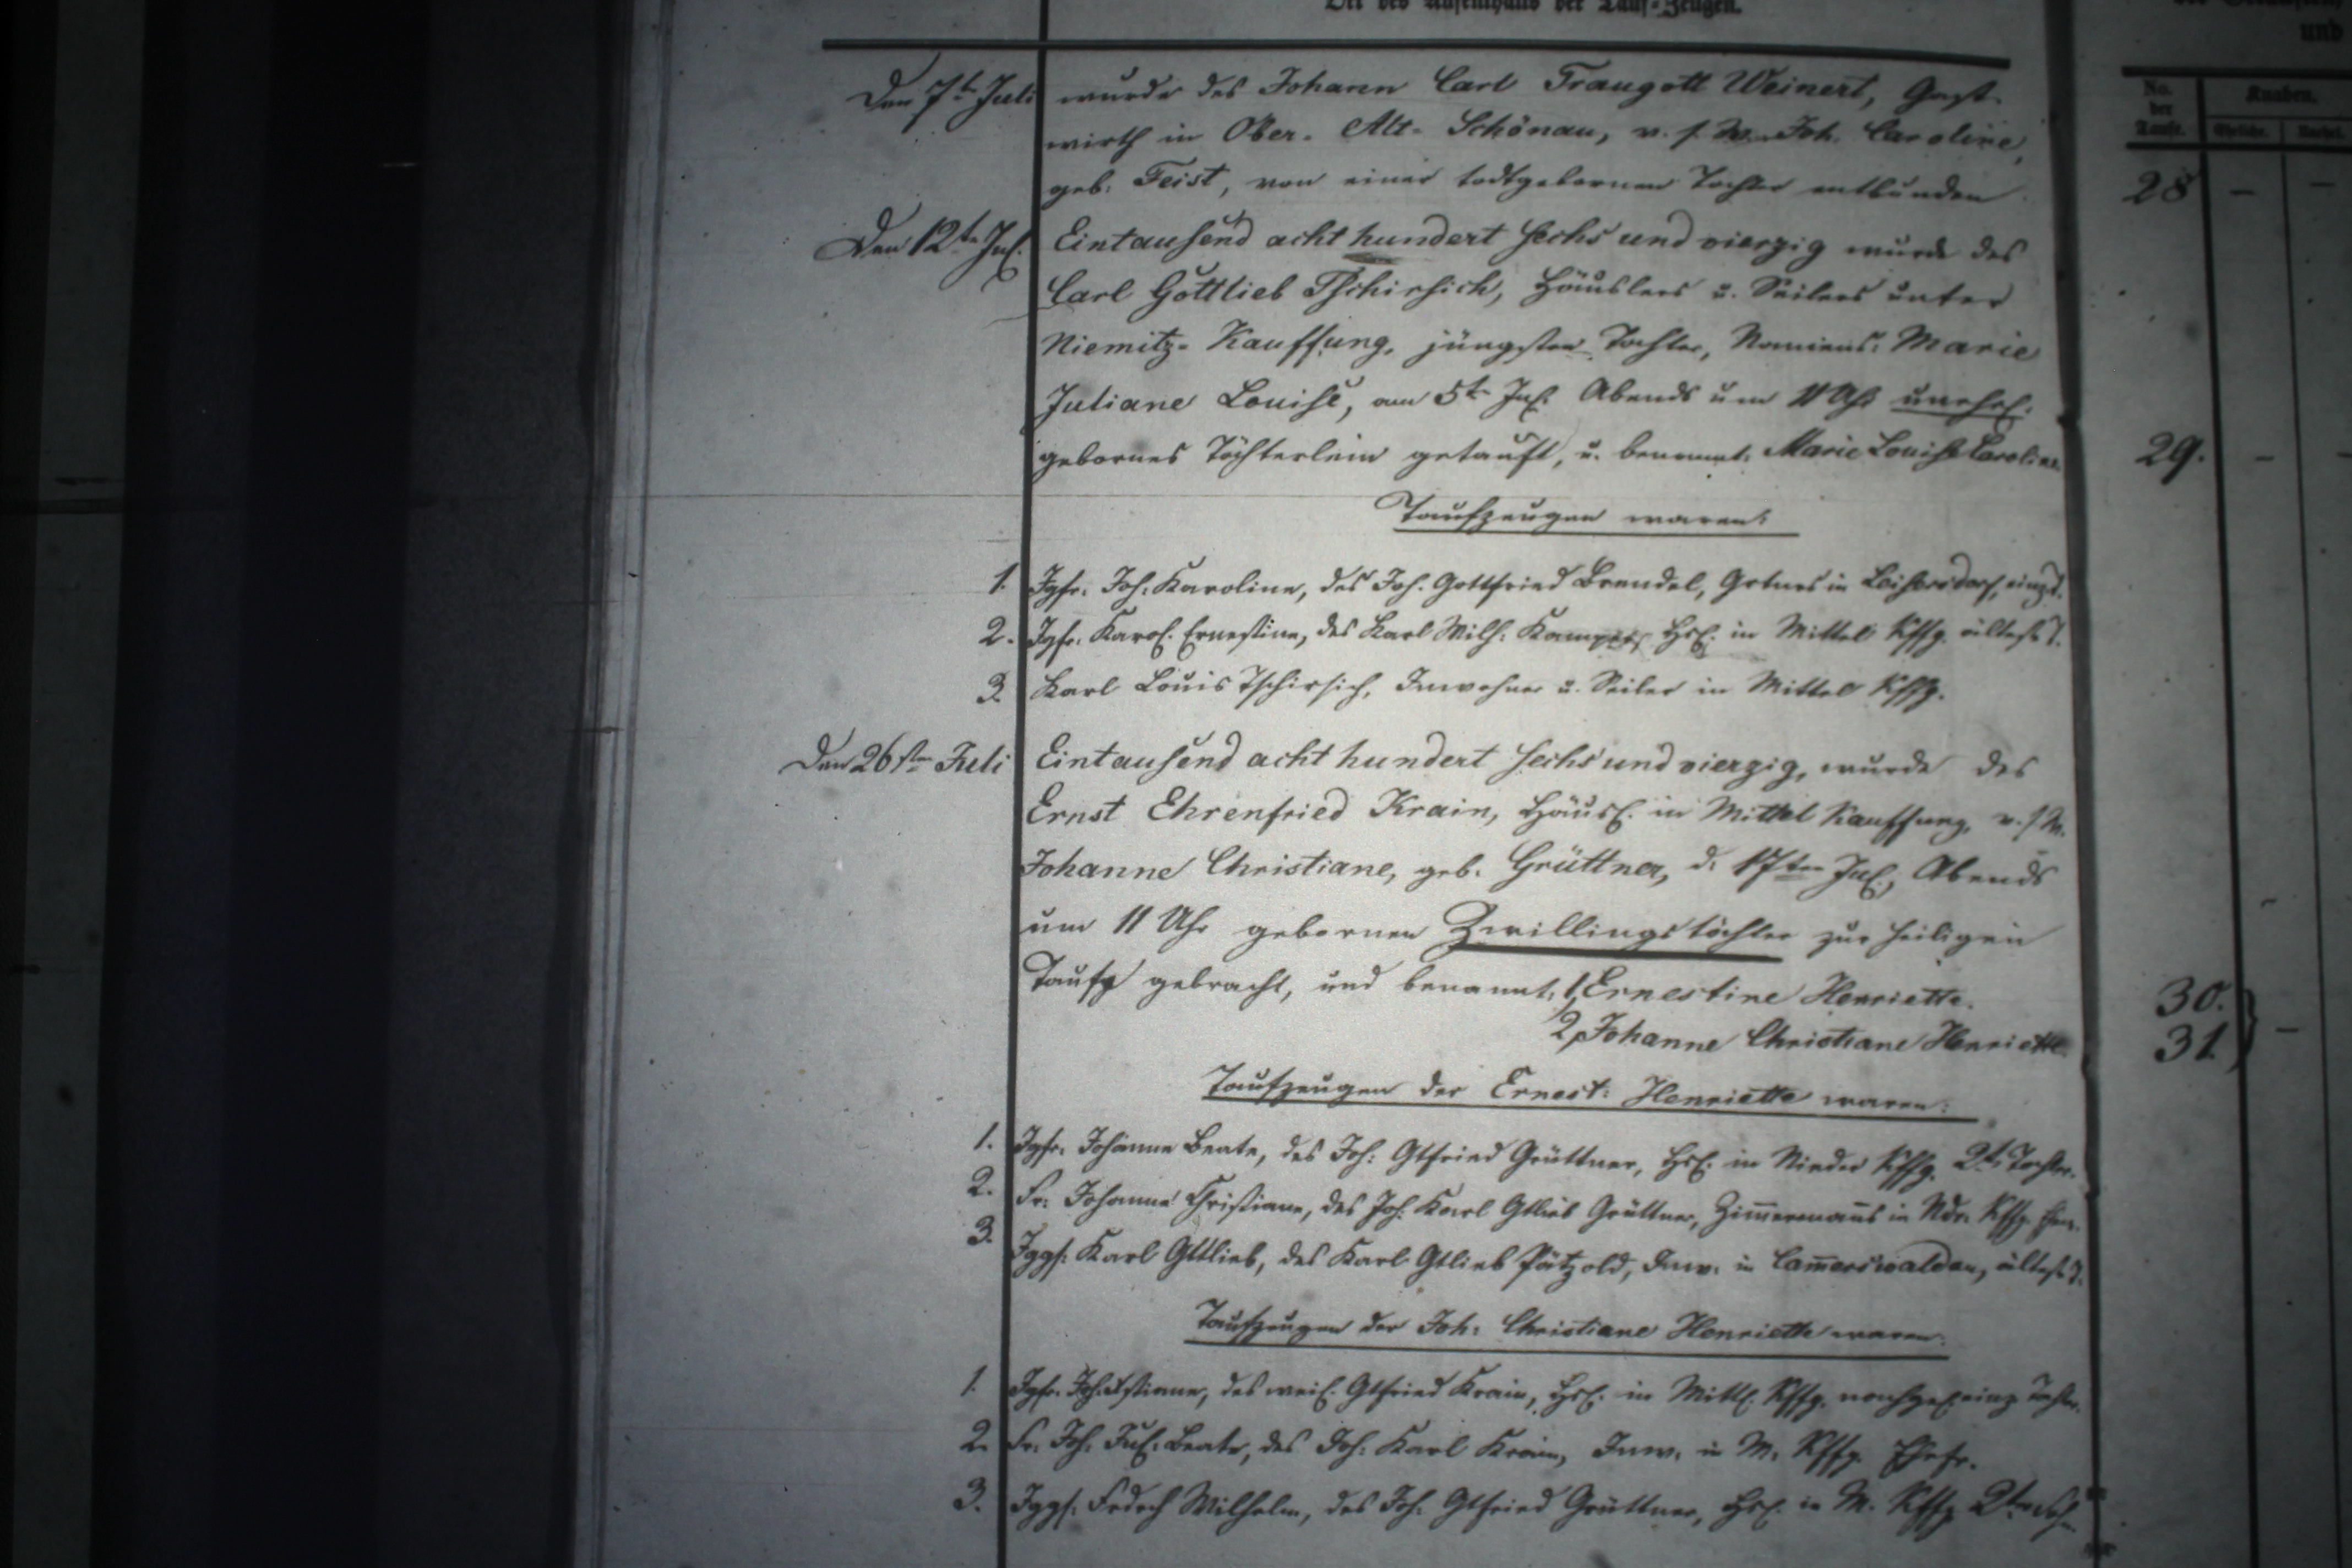 Ort des Aufenthalts der Tauf-Zeugen.
und
No. der Taufe.
Knaben.
Eheliche.
Den 7t Juli wurde des Johann Carl Traugott Weinert, Gast-
wirth in Ober-Alt-Schönau, v. s. W. Joh. Caroline,
geb. Feist, von einer todtgebornen Tochter entbunden
28 — —
Den 12te Jul. Eintausend acht hundert sechs und vierzig wurde des
Carl Gottlieb Tschirsich, Häuslers u. Seilers unter
Niemitz-Kauffung, jüngsten Tochter, Namens: Marie
Juliane Louise, am 5t Jul. Abends um 11 Uhr unehel.
gebornes Töchterlein getauft, u. benannt: Marie Louise Caroline
29. —
Taufzeugen waren:
1. Jgfr. Joh. Karoline, des Joh. Gottfried Brendel, in Leisersdorf, einz. T.
2. Jgfr. Karol. Ernestine, des Karl Wilh. Hsl. in Mittel Kffg. älteste T.
3. Karl Louis Tschirsich, Inwohner u. Seiler in Mittel Kffg.
Den 26sten Juli Eintausend acht hundert sechs und vierzig, wurde des
Ernst Ehrenfried Krain, Häusl. in Mittel Kauffung, v. s. W.
Johanne Christiane, geb. Grüttner, d. 17ten Jul., Abends
um 11 Uhr gebornen Zwillingstöchter zur heiligen
Taufe gebracht, und benannt: 1, Ernestine Henriette.
2, Johanne Christiane Henriette.
30.
31. } —
Taufzeugen der Ernest: Henriette waren:
1. Jgfr. Johanne Beate, des Joh: Gtfried Grüttner, Hsl. in Nieder Kffg. 2te Tochter.
2. Fr. Johanne Christiane, des Joh. Karl Gtlieb Grüttner, Zim̅ermañs in Ndr. Kffg.
3. Jggs. Karl Gttlieb, des Karl Gtlieb Pätzold, Inw. in Cam̅erswaldau, ältest. S.
Taufzeugen der Joh: Christiane Henriette waren:
1. Jgfr. Joh. des weil. Gtfried Krain, Hsl. in Mittl. Kffg. nachgel. einz. Tochter.
2. Fr. Joh. Jul. Beate, des Joh. Karl Krain, Inw. in M. Kffg. Ehefr.
3. Jggs. Fedrch Wilhelm, des Joh. Gtfried Grüttner, Hsl. in M. Kffg. 2ter Sohn